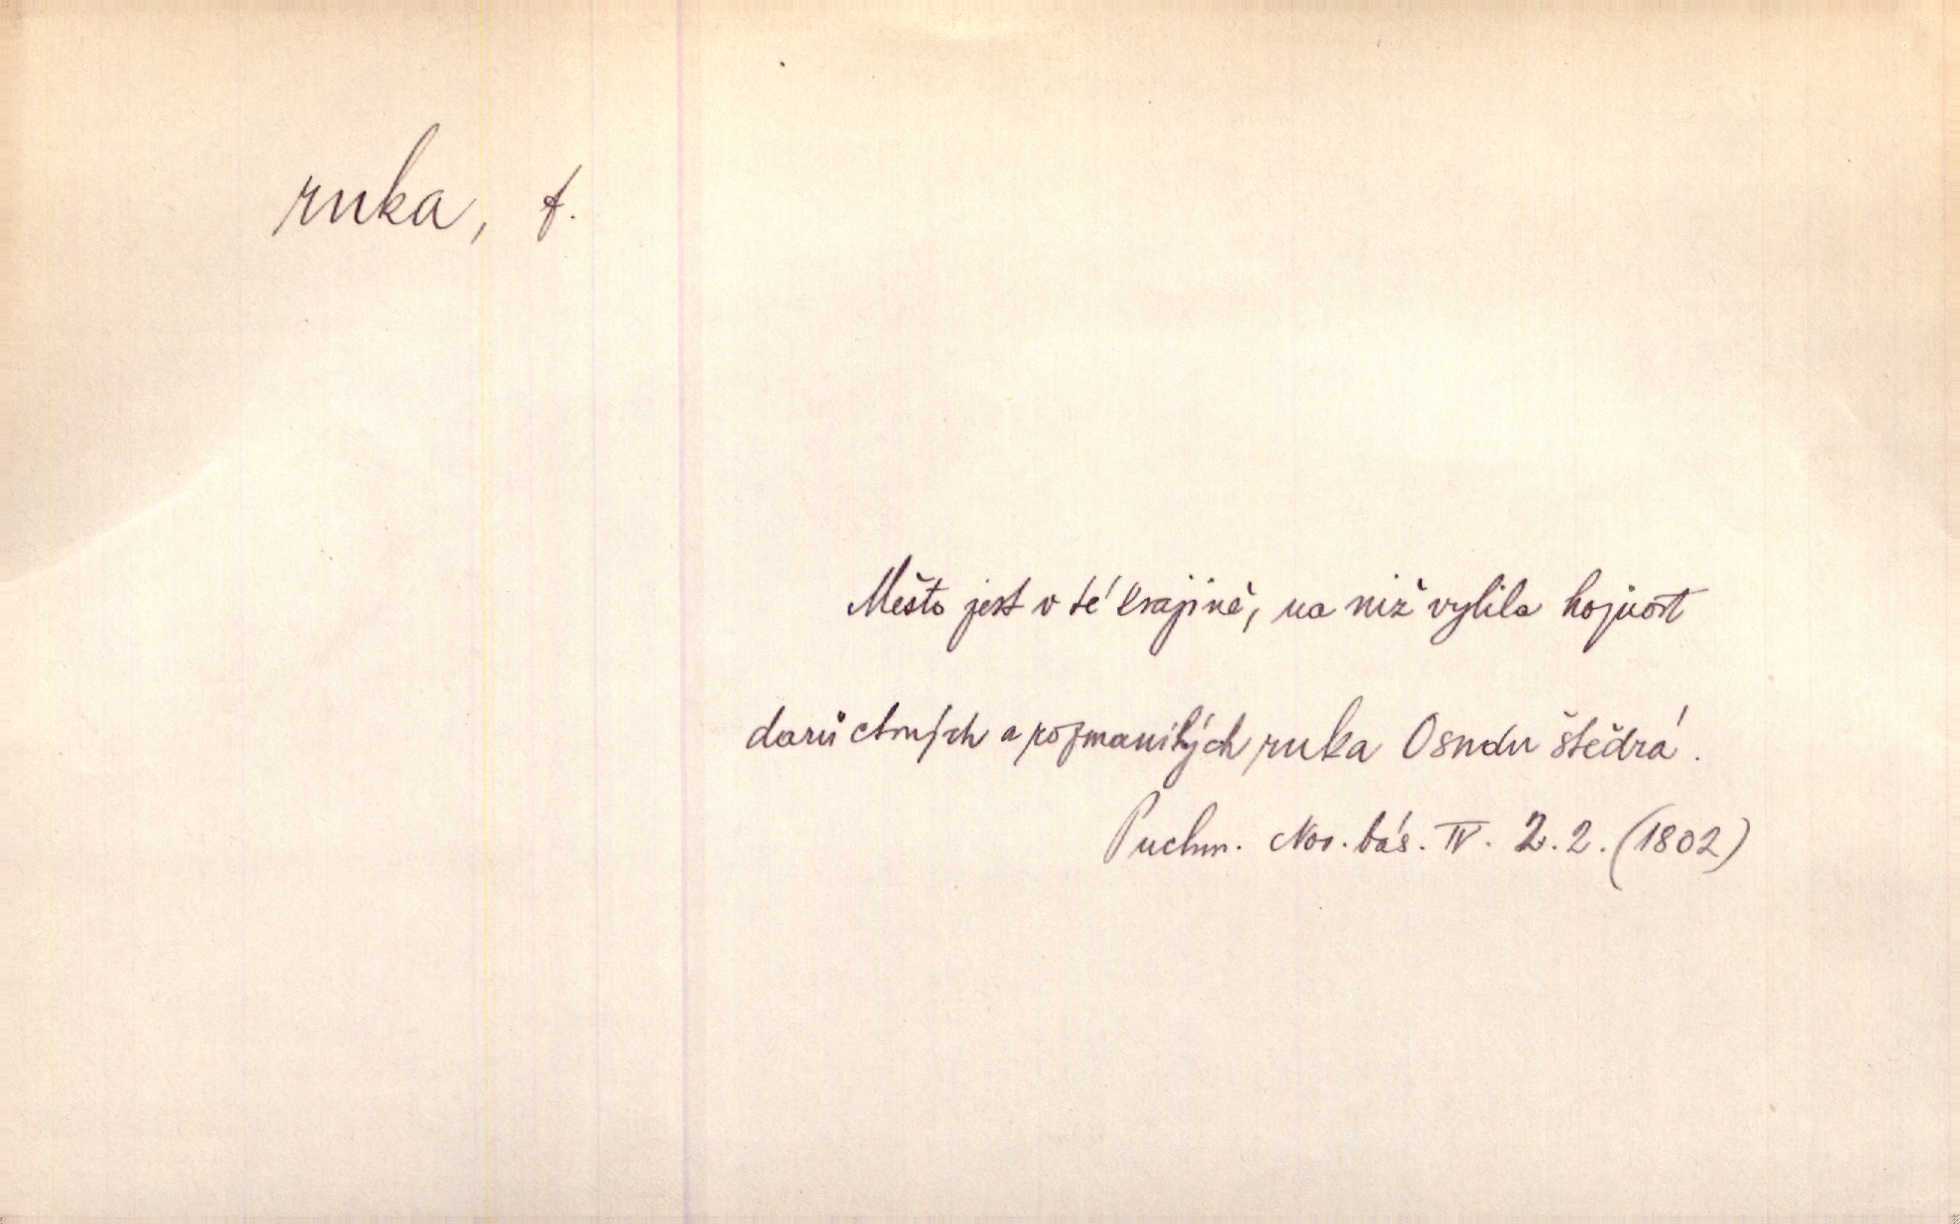 ruka, f.
Město jest v té krajině, na niž vylila hojnost
darů ctných a rozmanitých ruka Osudu štědrá.
Puchm. Nov. bás. IV. 2.2. (1802)